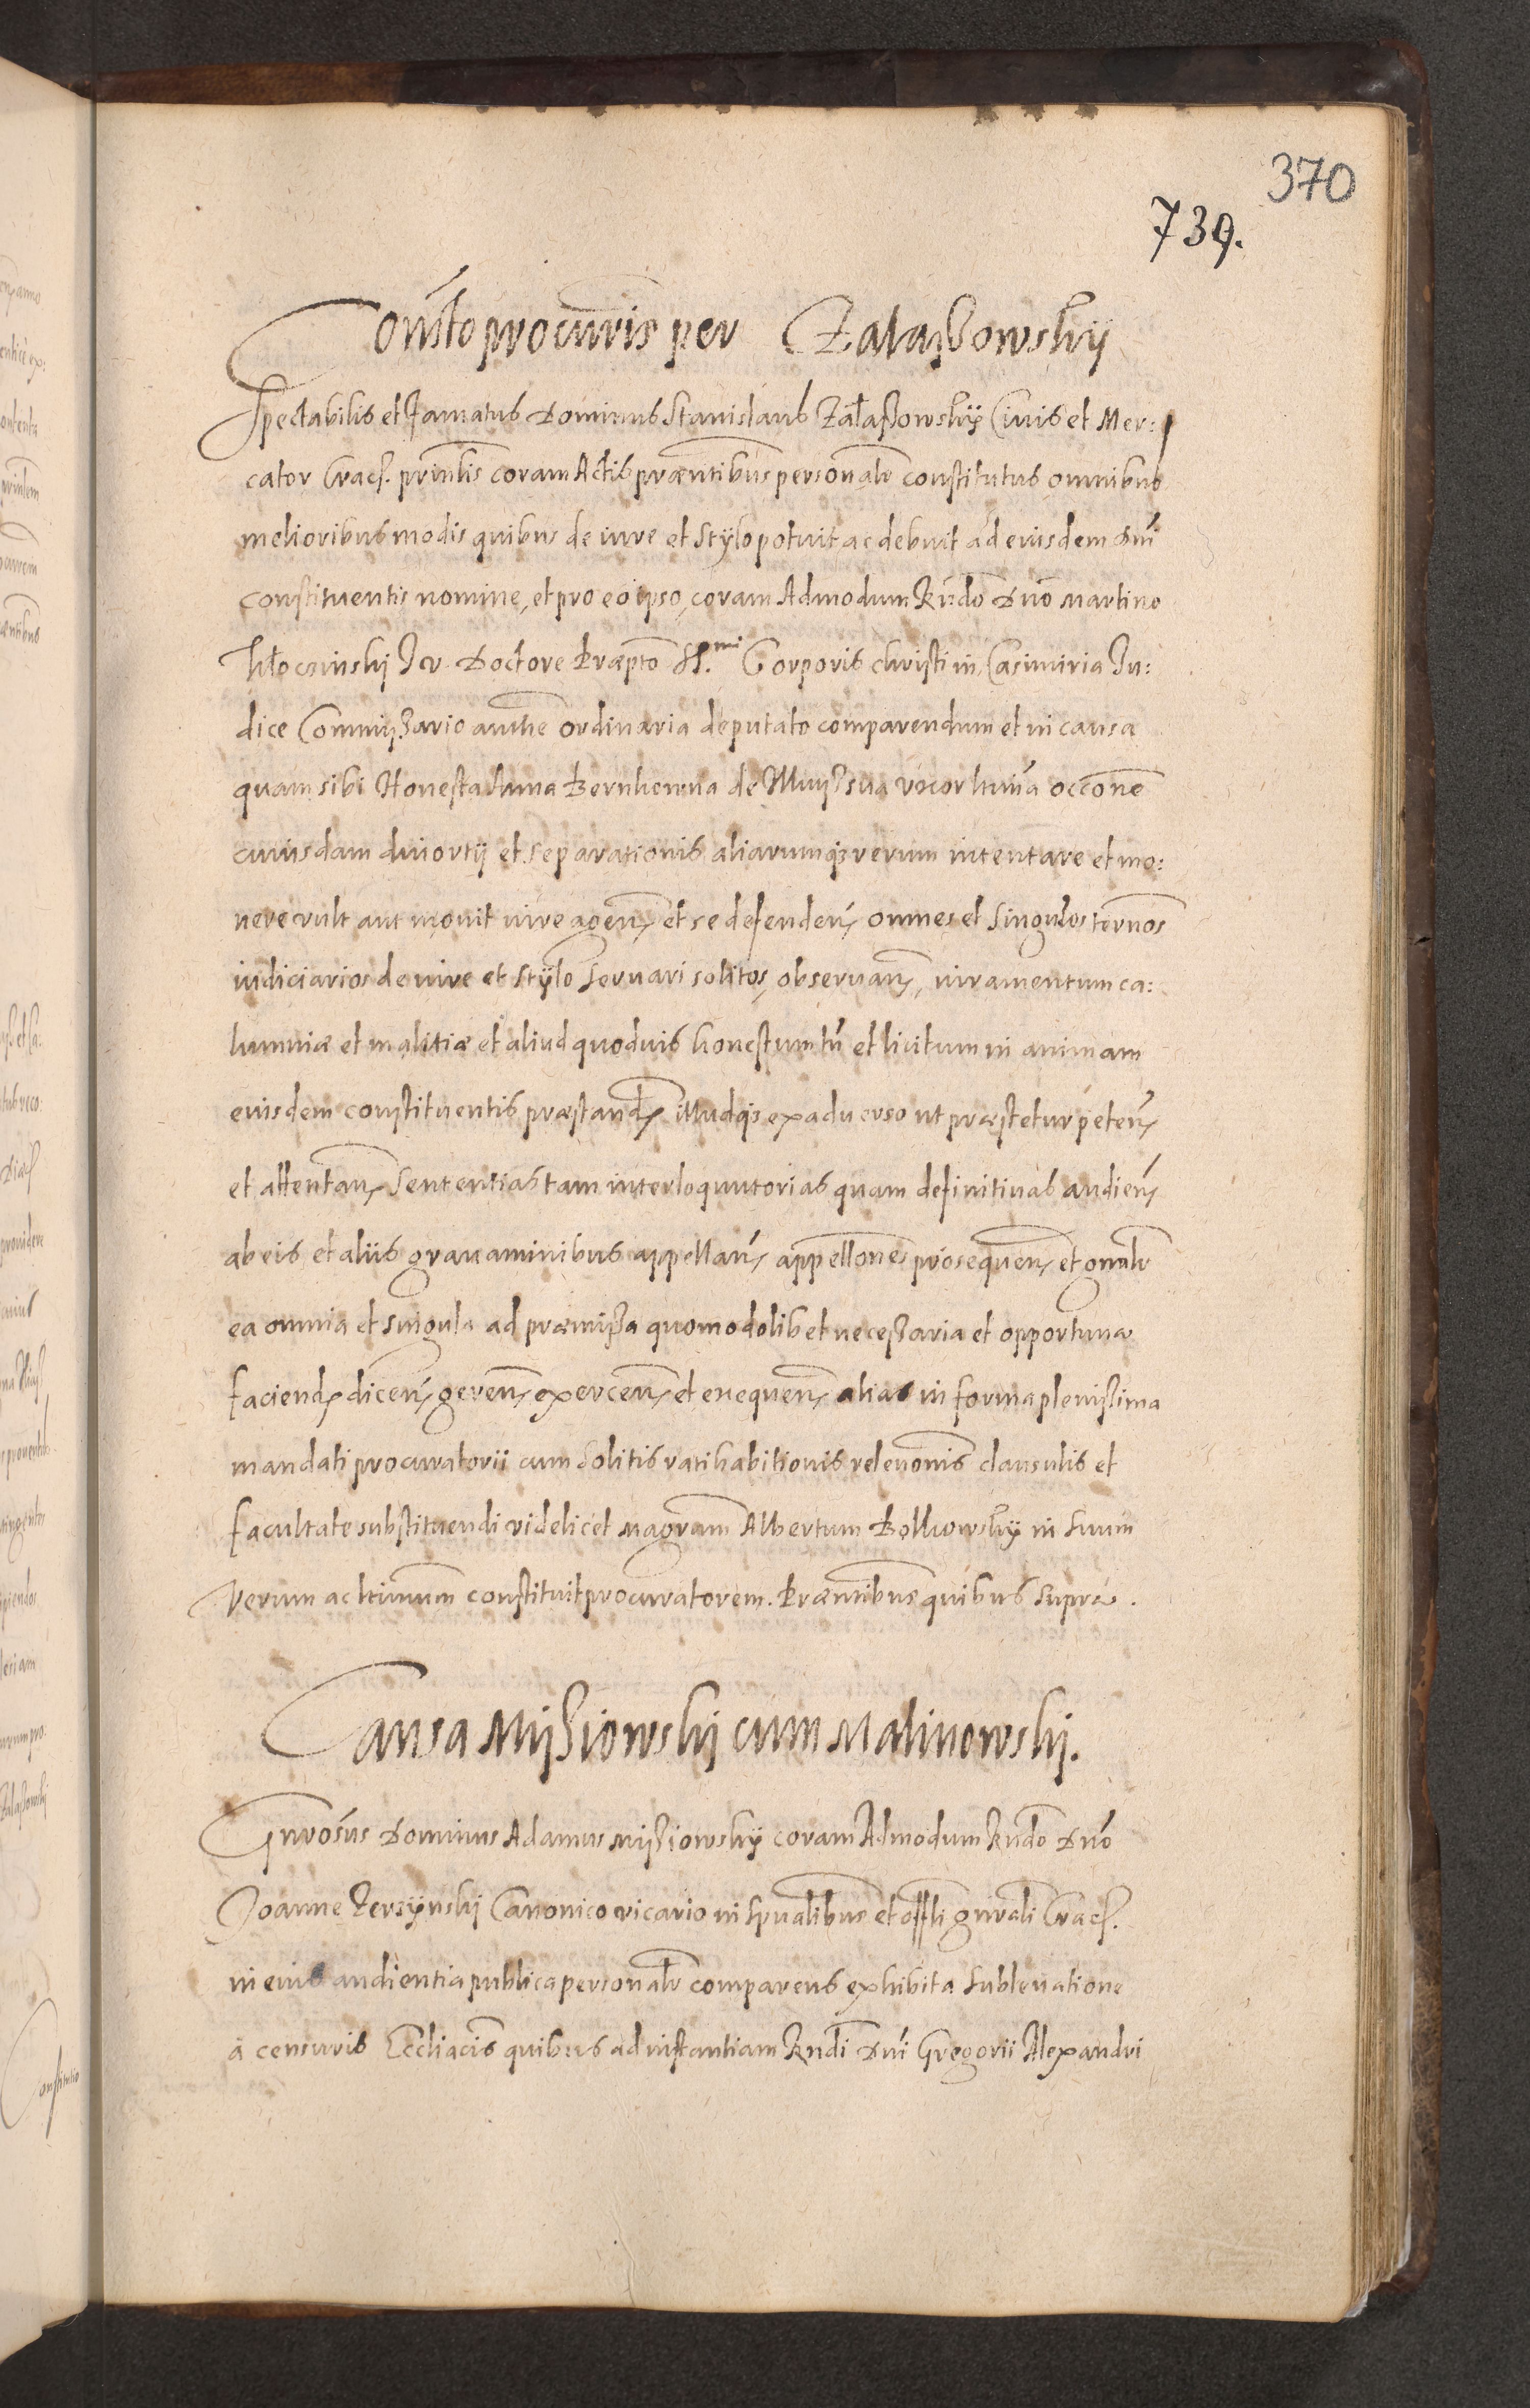 370
739.
Constō procuris per Zalaßowskÿ
Spectabilis et Famatus Dominus Stanislaus Zalaßowskÿ Civis et Mer:
cator Crac. prīntis coram Actis præntibus personalr constitutus omnibus
melioribus modis quibus de iure et stylo potuit ac debuit ad eiusdem Dnī
constituentis nomine, et pro eo ipso, coram Admodum Rndō Dnō Martino
Kłoczinskÿ I. V. Doctore Præptō SS.mi Corporis christi in Casimiria Iu:
dice Commißario authe Ordinaria deputato comparendum et in causa
quam sibi Honesta Anna de Muyß sua uxor ltīma occone
cuiusdam divortÿ et separationis aliarumq; rerum intentare et mo:
vere vult aut movit iure agen. et se defenden. omnes et singulos ternos
iudiciarios de iure et stÿlo servari solitos, observan. iuramentum ca:
lumniæ et malitiæ et aliud quoduis honestum tn̄ et licitum in animam
eiusdem constituentis præstand. illudq; ex aduerso ut præstetur peten.
et attentan. Sententias tam interloquutorias quam definitivas audien.
ab eis et aliis gravaminibus appellan. appellones prosequen. et gnalr
ea omnia et singula ad præmißa quomodolibet neceßaria et opportuna
faciend. dicen. geren. exercen. et exequen. alias in forma plenißima
mandati procuratorii cum solitis ratihabitionis relevonis clausulis et
facultate substituendi videlicet magrum Albertum in suum
verum ac ltimum constituit procuratorem. Præntibus quibus supra.
Causa Mißiowskÿ cum Malinowskÿ.
Gnrosus Dominus Adamus Mißiowskÿ coram Admodum Rndō Dnō
Joanne Canonico vicario in spualibus et offli gnrali Crac.
in eius audientia publica personalr comparens exhibita sublevatione
à censuris Eccliacis quibus ad instantiam Rndi Dni Gregorii Alexandri